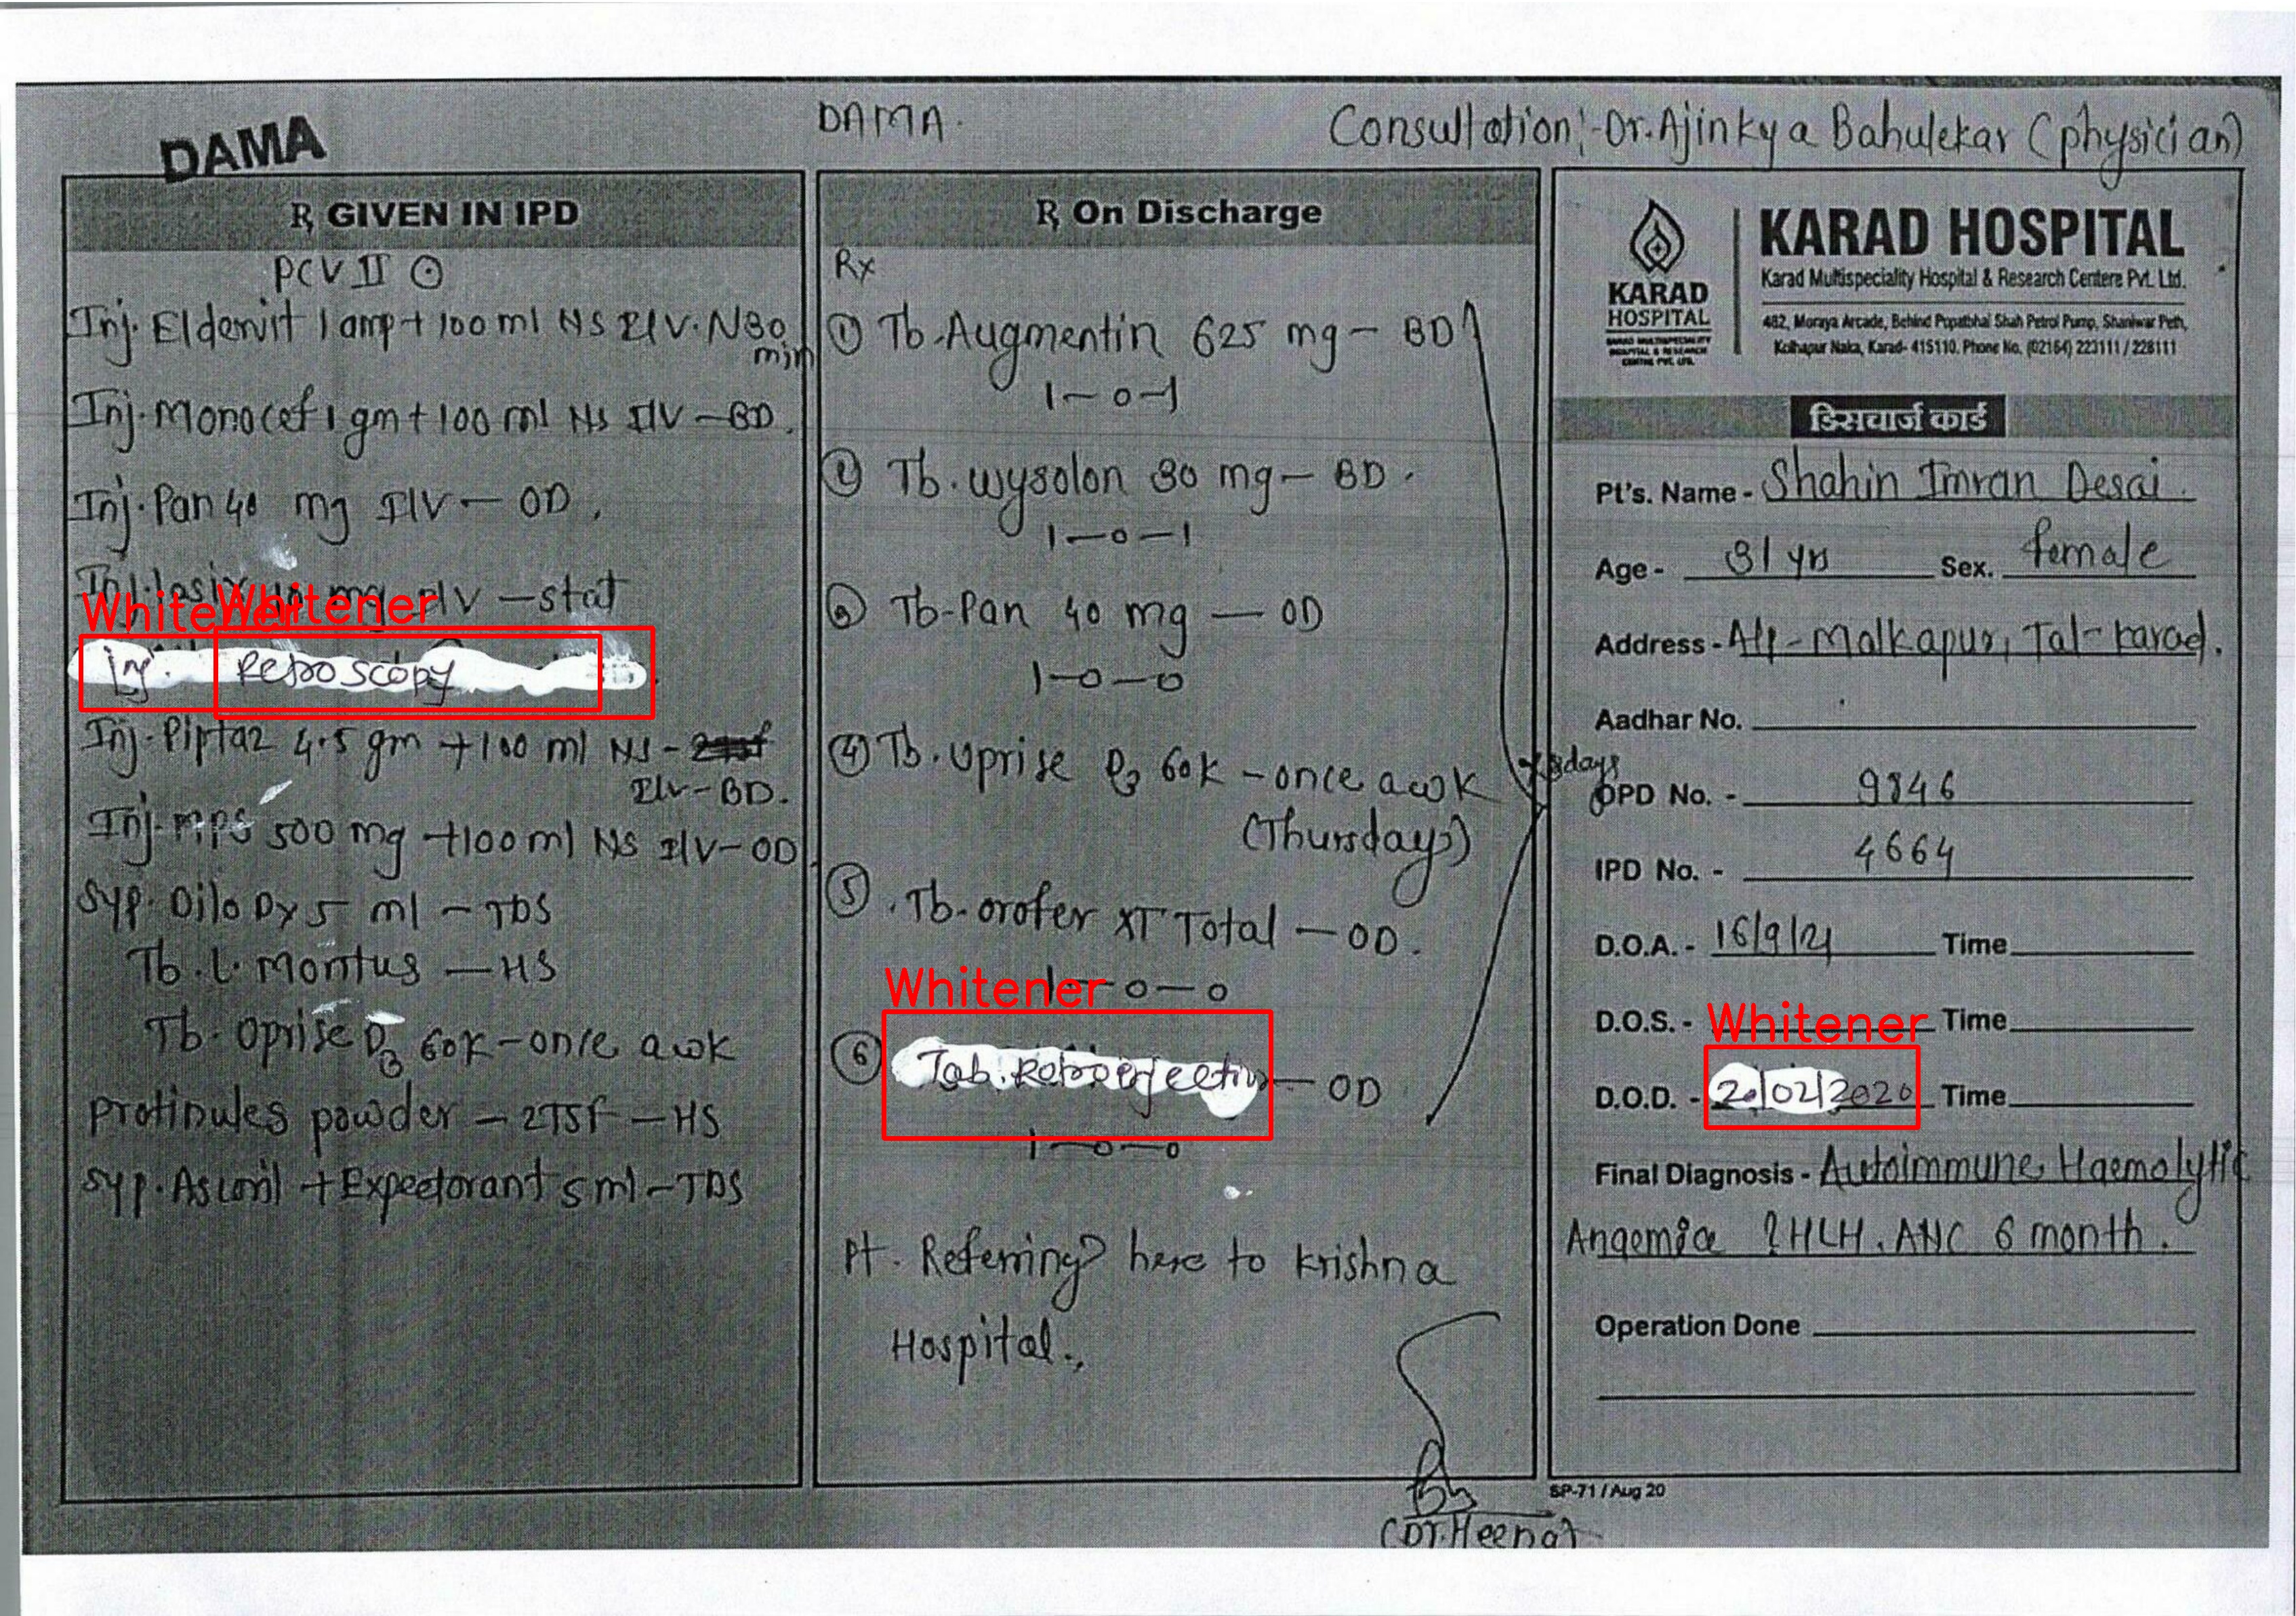 DAMA
DAMA.
Consultation:-Dr.Ajinkya Bahulekar (physician)
℞ GIVEN IN IPD
PCV II
Inj. Eldervit 1 amp + 100 ml NS I/V. N30
min
Inj. Monocef 1 gm + 100 ml NS I/V - BD.
Inj. Pan 40 mg I/V - OD.
Inj. lasix mg I/V - stat
Whitener
Whitener
Inj. Retroscopy
Inj. Piptaz 4.5 gm + 100 ml NS -
I/V - BD.
Inj. MPS 500 mg + 100 ml NS I/V - OD
Syp. Dilo Dx 5 ml - TDS
Tb. L. Montus - HS
Tb. Uprise D3 60K - once a wk
Protinules powder - 2TSF - HS
Syp. Ascoril + Expectorant 5 ml - TDS
℞ On Discharge
Rx
① Tb. Augmentin 625 mg - BD
1-0-1
② Tb. Wysolon 30 mg - BD.
1-0-1
③ Tb-Pan 40 mg - OD
1-0-0
④ Tb. Uprise D3 60K - once a wk
(Thursdays)
8 days
⑤ Tb. Orofer XT Total - OD.
1-0-0
Whitener
⑥ Tab. - OD
1-0-0
Pt. Referring here to Krishna
Hospital.,
(Dr. Heena)
KARAD
HOSPITAL
KARAD MULTISPECIALITY
HOSPITAL & RESEARCH
CENTRE PVT. LTD.
KARAD HOSPITAL
Karad Multispeciality Hospital & Research Centere Pvt. Ltd.
482, Moraya Arcade, Behind Popatbhai Shah Petrol Pump, Shaniwar Peth,
Kolhapur Naka, Karad- 415110. Phone No. (02164) 223111 / 228111
डिसचार्ज कार्ड
Pt's. Name - Shahin Imran Desai
Age - 31 yrs Sex. female
Address - A/p - Malkapur, Tal- Karad.
Aadhar No.
OPD No. - 9846
IPD No. - 4664
D.O.A. - 16/9/21 Time
D.O.S. - Time
Whitener
D.O.D. - 20/02/2020 Time
Final Diagnosis - Autoimmune Haemolytic
Anaemia ? HLH. ANC 6 month.
Operation Done
SP-71 / Aug 20